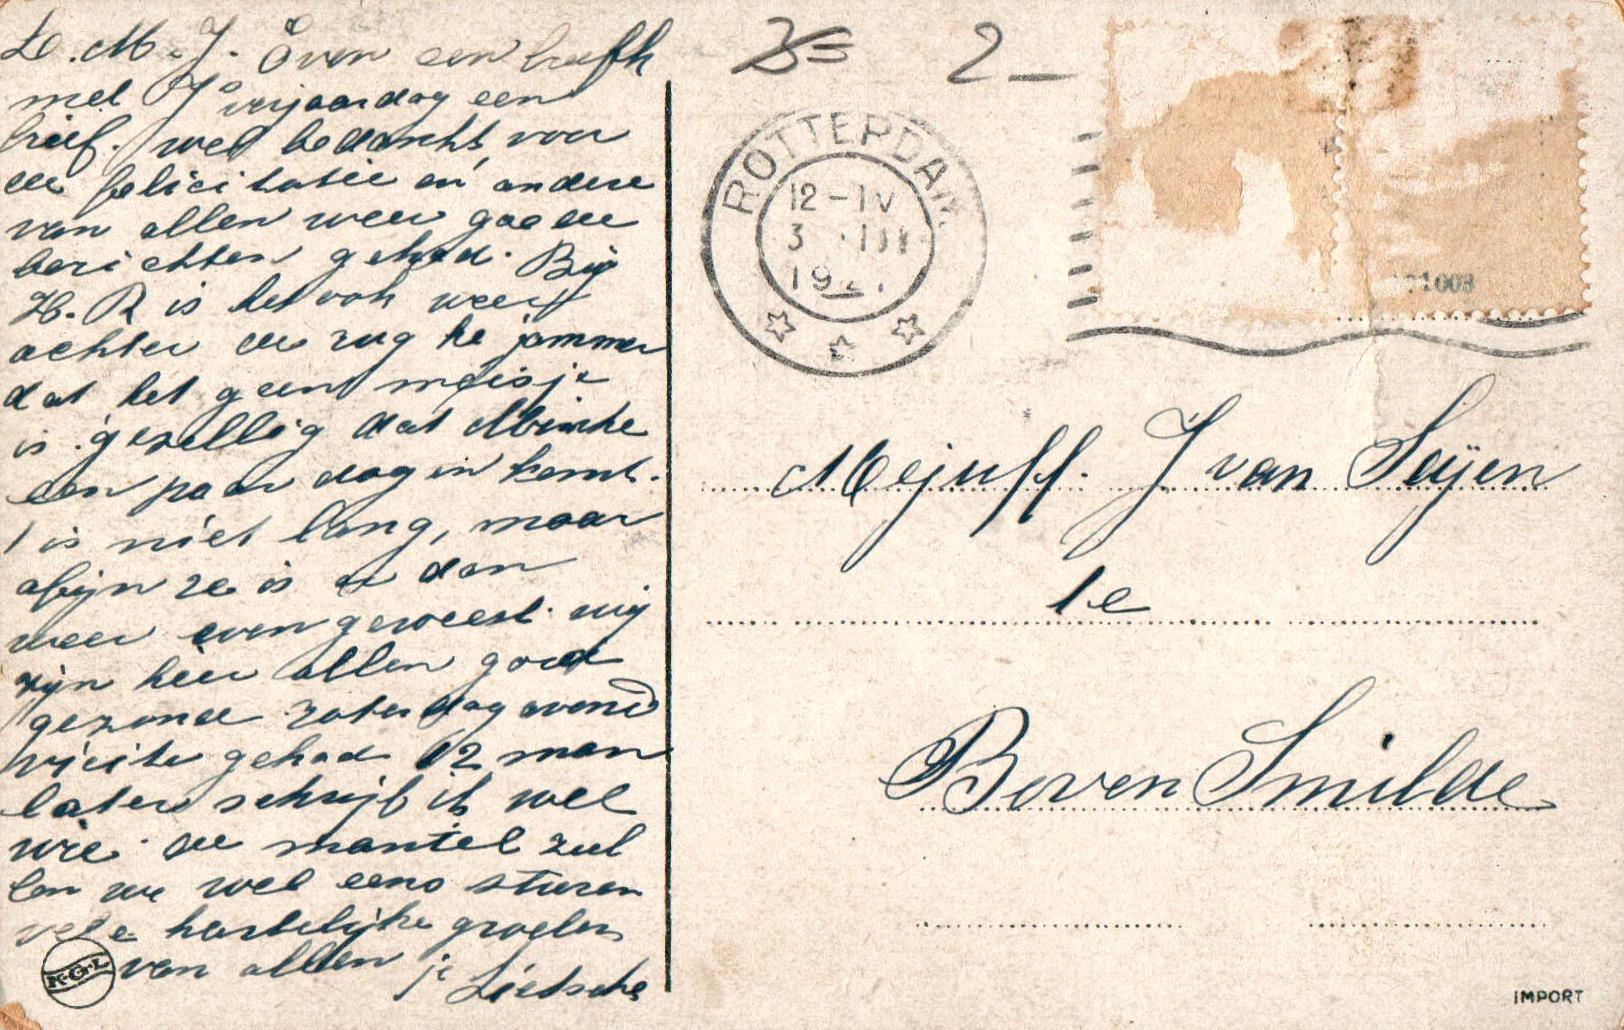 L. M. J. Even een briefk
met J verjaardag een
brief. wel bedankt voor
de felicitatie en andere
van allen weer goede
berichten gehad. Bij
H. R is het ook weer
achter de rug he jammer
dat het geen meisje
is. gezellig dat Mimke
een paar dagen komt.
t is niet lang, maar
afijn ze is er dan
weer even geweest. wij
zijn hier allen goed
gezond zaterdag avond
visite gehad 12 man
later schrijf ik wel
wie. de mantel zul
len we wel eens sturen
vele hartelijke groeten
van allen je Lietsche
N.G.L
3=
2 —
ROTTERDAM
12-IV
3 III
192
1003
Mejuff. J van Seijen
1e
Boven Smilde
IMPORT